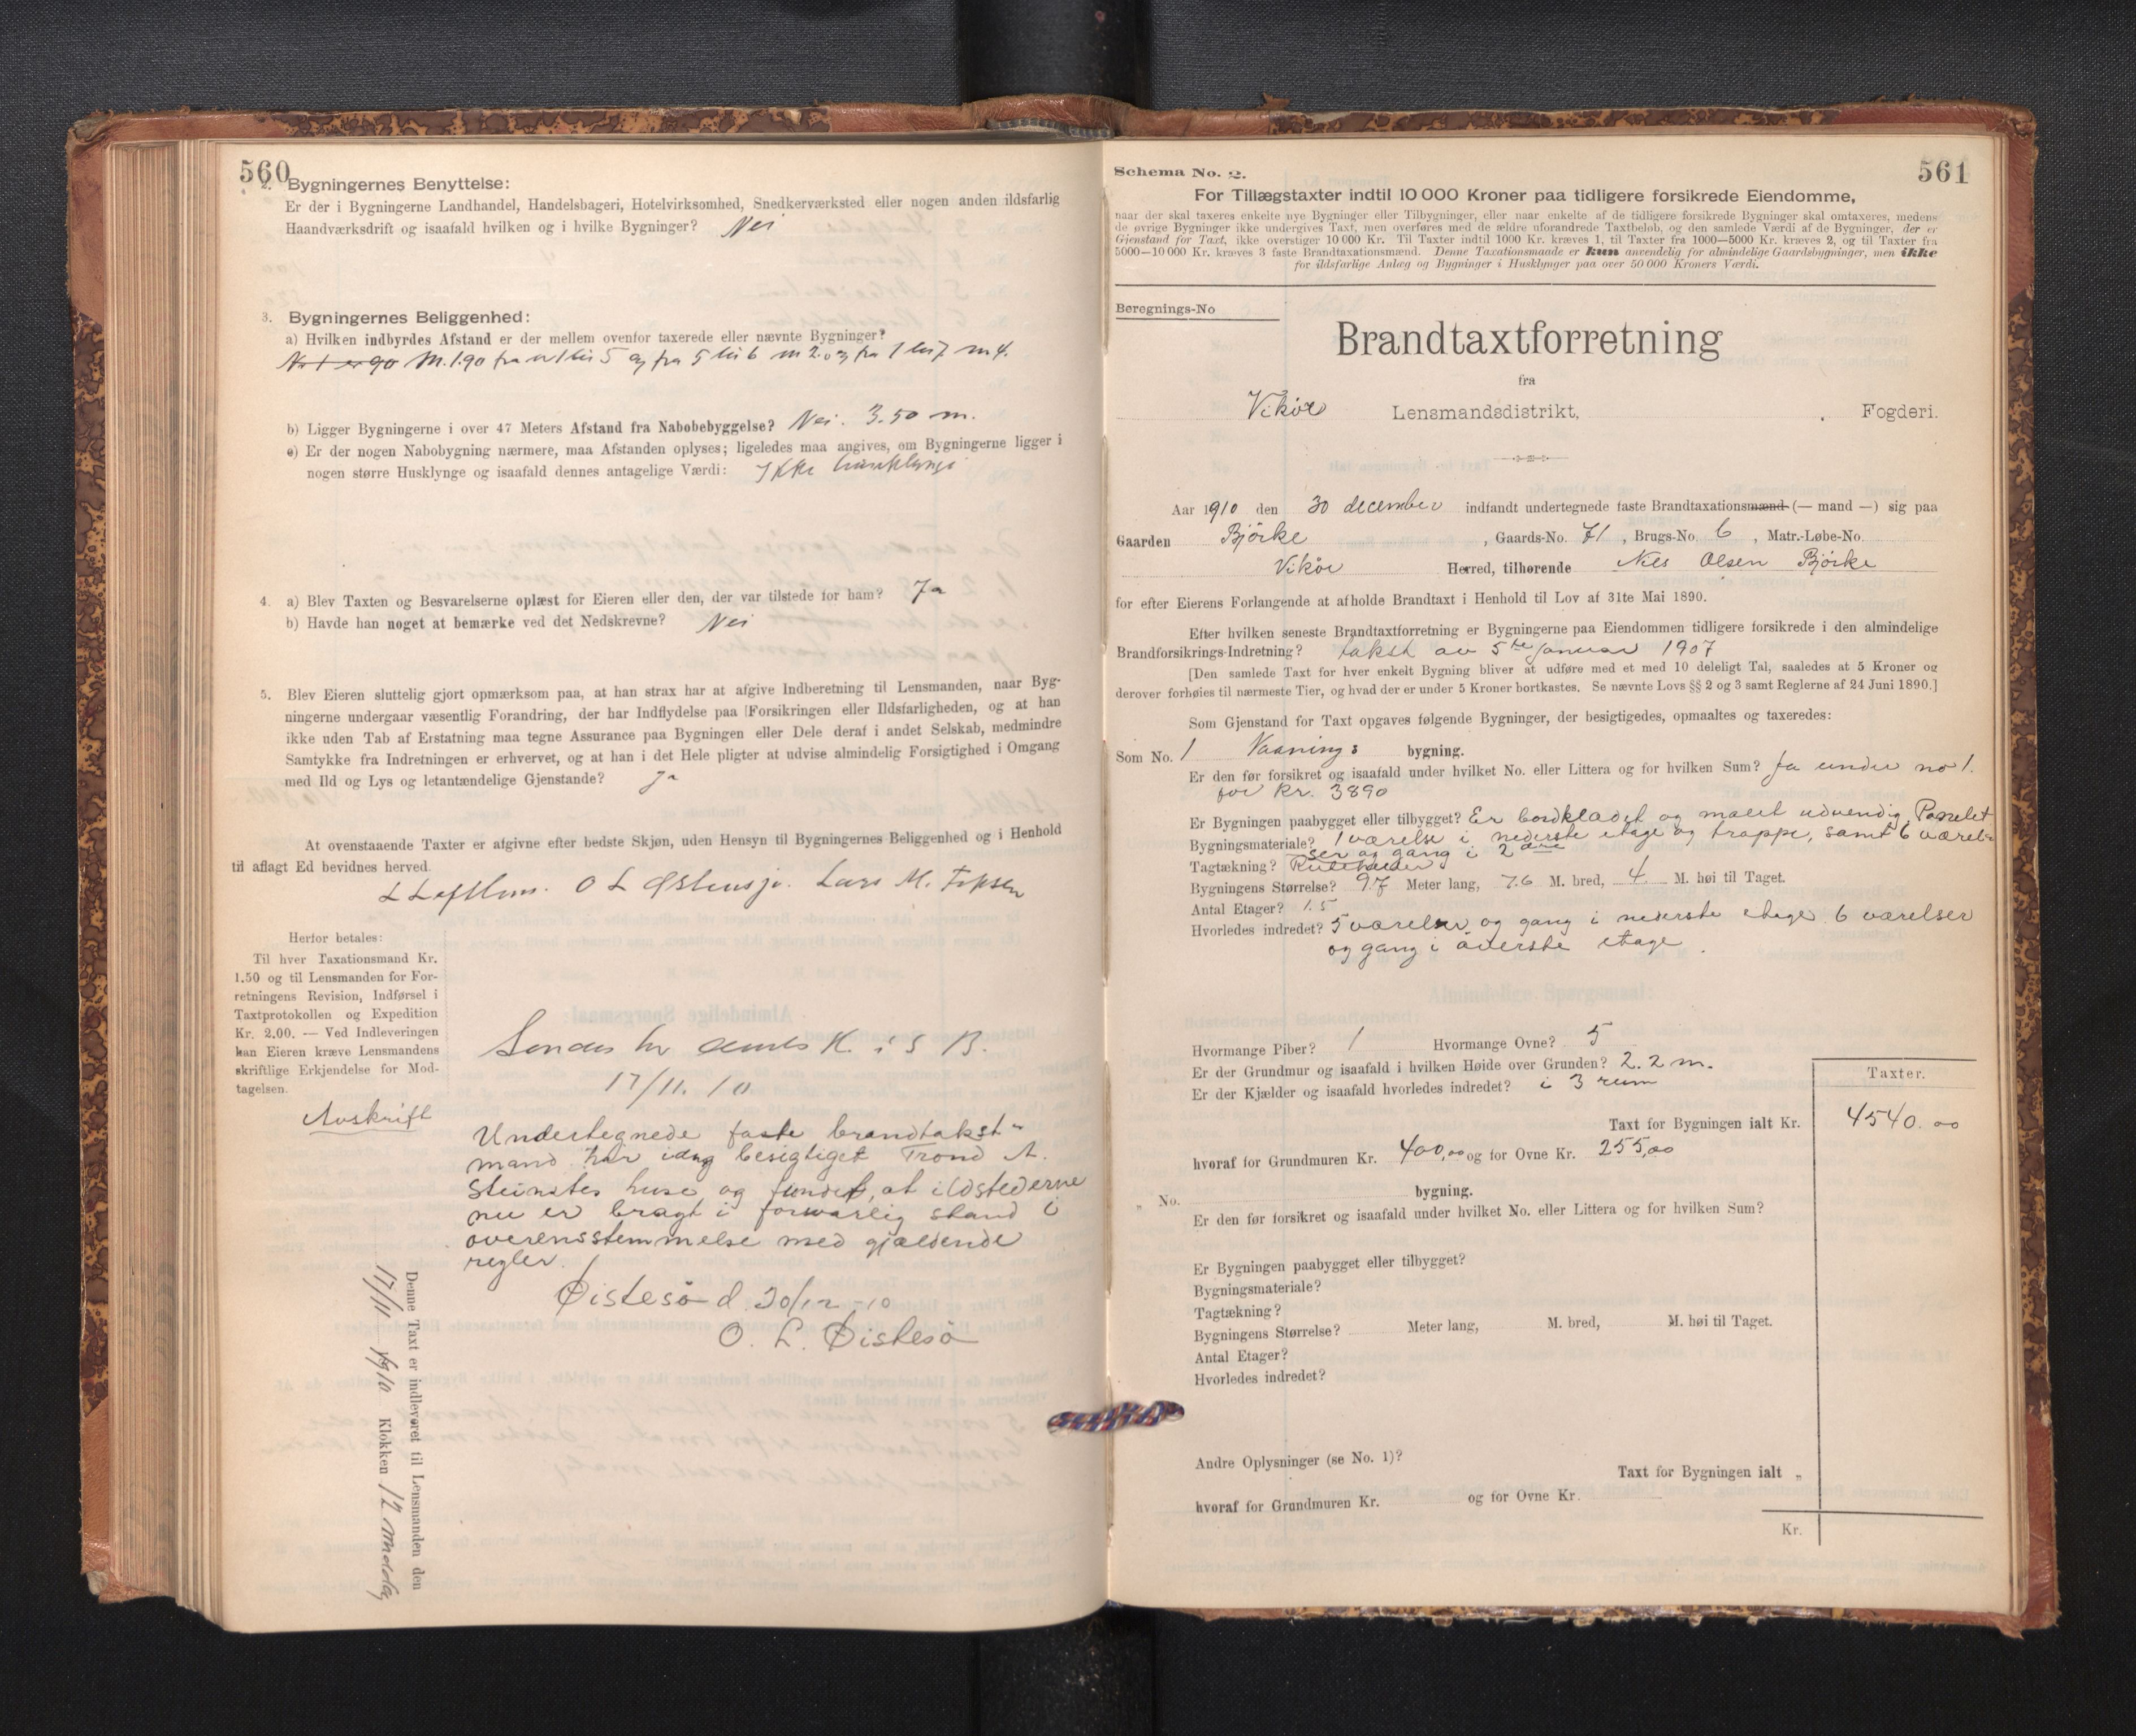 560
2. Bygningernes Benyttelse:
Er der i Bygningerne Landhandel, Handelsbageri, Hotelvirksomhed, Snedkerværksted eller nogen anden ildsfarlig
Haandværksdrift og isaafald hvilken og i hvilke Bygninger? Nei
3. Bygningernes Beliggenhed:
a) Hvilken indbyrdes Afstand er der mellem ovenfor taxerede eller nævnte Bygninger?
No 1 er 90 M. 1.90 fra n 1 til 5 og fra 5 til 6 m 2. og fra 1 til 7 m 4.
b) Ligger Bygningerne i over 47 Meters Afstand fra Nabobebyggelse? Nei. 3.50 m.
c) Er der nogen Nabobygning nærmere, maa Afstanden oplyses; ligeledes maa angives, om Bygningerne ligger i
nogen større Husklynge og isaafald dennes antagelige Værdi: Ikke husklynge
4. a) Blev Taxten og Besvarelserne oplæst for Eieren eller den, der var tilstede for ham? Ja
b) Havde han noget at bemærke ved det Nedskrevne? Nei
5. Blev Eieren sluttelig gjort opmærksom paa, at han strax har at afgive Indberetning til Lensmanden, naar Byg-
ningerne undergaar væsentlig Forandring, der har Indflydelse paa Forsikringen eller Ildsfarligheden, og at han
ikke uden Tab af Erstatning maa tegne Assurance paa Bygningen eller Dele deraf i andet Selskab, medmindre
Samtykke fra Indretningen er erhvervet, og at han i det Hele pligter at udvise almindelig Forsigtighed i Omgang
med Ild og Lys og letantændelige Gjenstande? Ja
At ovenstaaende Taxter er afgivne efter bedste Skjøn, uden Hensyn til Bygningernes Beliggenhed og i Henhold
til aflagt Ed bevidnes herved.
O L Lars M.
Herfor betales:
Til hver Taxationsmand Kr.
1.50 og til Lensmanden for For-
retningens Revision, Indførsel i
Taxtprotokollen og Expedition
Kr. 2.00. — Ved Indleveringen
kan Eieren kræve Lensmandens
skriftlige Erkjendelse for Mod-
tagelsen.
17/11. 10
Avskrift
Undertegnede faste brandtakst-
mand har idag besigtiget Trond A.
Steinstøs huse og fundet, at ildstederne
nu er bragt i forsvarlig stand i
overensstemmelse med gjældende
regler.
Øistesö d. 20/12-10
O. L. Øistesö
Denne Taxt er indleveret til Lensmanden den
17/11 1910 Klokken 12 middag
561
Schema No. 2.
For Tillægstaxter indtil 10 000 Kroner paa tidligere forsikrede Eiendomme,
naar der skal taxeres enkelte nye Bygninger eller Tilbygninger, eller naar enkelte af de tidligere forsikrede Bygninger skal omtaxeres, medens
de øvrige Bygninger ikke undergives Taxt, men overføres med de ældre uforandrede Taxtbeløb, og den samlede Værdi af de Bygninger, der er
Gjenstand for Taxt, ikke overstiger 10 000 Kr. Til Taxter indtil 1000 Kr. kræves 1, til Taxter fra 1000—5000 Kr. kræves 2, og til Taxter fra
5000—10 000 Kr. kræves 3 faste Brandtaxationsmænd. Denne Taxationsmaade er kun anvendelig for almindelige Gaardsbygninger, men ikke
for ildsfarlige Anlæg og Bygninger i Husklynger paa over 50 000 Kroners Værdi.
Beregnings-No
Brandtaxtforretning
fra
Vikör Lensmandsdistrikt, Fogderi.
Aar 1910 den 30 december indfandt undertegnede faste Brandtaxationsmænd (— mand —) sig paa
Gaarden Björke, Gaards-No. 71, Brugs-No. 6, Matr.-Løbe-No.
Vikör Herred, tilhørende Nils Olsen Björke
for efter Eierens Forlangende at afholde Brandtaxt i Henhold til Lov af 31te Mai 1890.
Efter hvilken seneste Brandtaxtforretning er Bygningerne paa Eiendommen tidligere forsikrede i den almindelige
Brandforsikrings-Indretning? takst av 5te januar 1907
[Den samlede Taxt for hver enkelt Bygning bliver at udføre med et med 10 deleligt Tal, saaledes at 5 Kroner og
derover forhøies til nærmeste Tier, og hvad der er under 5 Kroner bortkastes. Se nævnte Lovs §§ 2 og 3 samt Reglerne af 24 Juni 1890.]
Som Gjenstand for Taxt opgaves følgende Bygninger, der besigtigedes, opmaaltes og taxeredes:
Som No. 1 Vaanings bygning.
Er den før forsikret og isaafald under hvilket No. eller Littera og for hvilken Sum? Ja under no 1.
for kr. 3890
Er Bygningen paabygget eller tilbygget? Er bordklædet og malet udvendig Panelet
Bygningsmateriale? 1 værelse i nederste etage og trappe, samt 6 værel-
ser og gang i 2den
Tagtækning?
Bygningens Størrelse? 9.7 Meter lang, 7.6 M. bred, 4 M. høi til Taget.
Antal Etager? 1.5
Hvorledes indredet? 5 værelser og gang i nederste etage 6 værelser
og gang i överste etage.
Hvormange Piber? 1 Hvormange Ovne? 5
Er der Grundmur og isaafald i hvilken Høide over Grunden? 2.2 m.
Er der Kjælder og isaafald hvorledes indredet? i 3 rum
Taxter.
Taxt for Bygningen ialt Kr. 4540.00
hvoraf for Grundmuren Kr. 400,00 og for Ovne Kr. 255,00
„ No. bygning.
Er den før forsikret og isaafald under hvilket No. eller Littera og for hvilken Sum?
Er Bygningen paabygget eller tilbygget?
Bygningsmateriale?
Tagtækning?
Bygningens Størrelse? Meter lang, M. bred, M. høi til Taget.
Antal Etager?
Hvorledes indredet?
Andre Oplysninger (se No. 1)?
Taxt for Bygningen ialt „
hvoraf for Grundmuren Kr. og for Ovne Kr.
Kr.